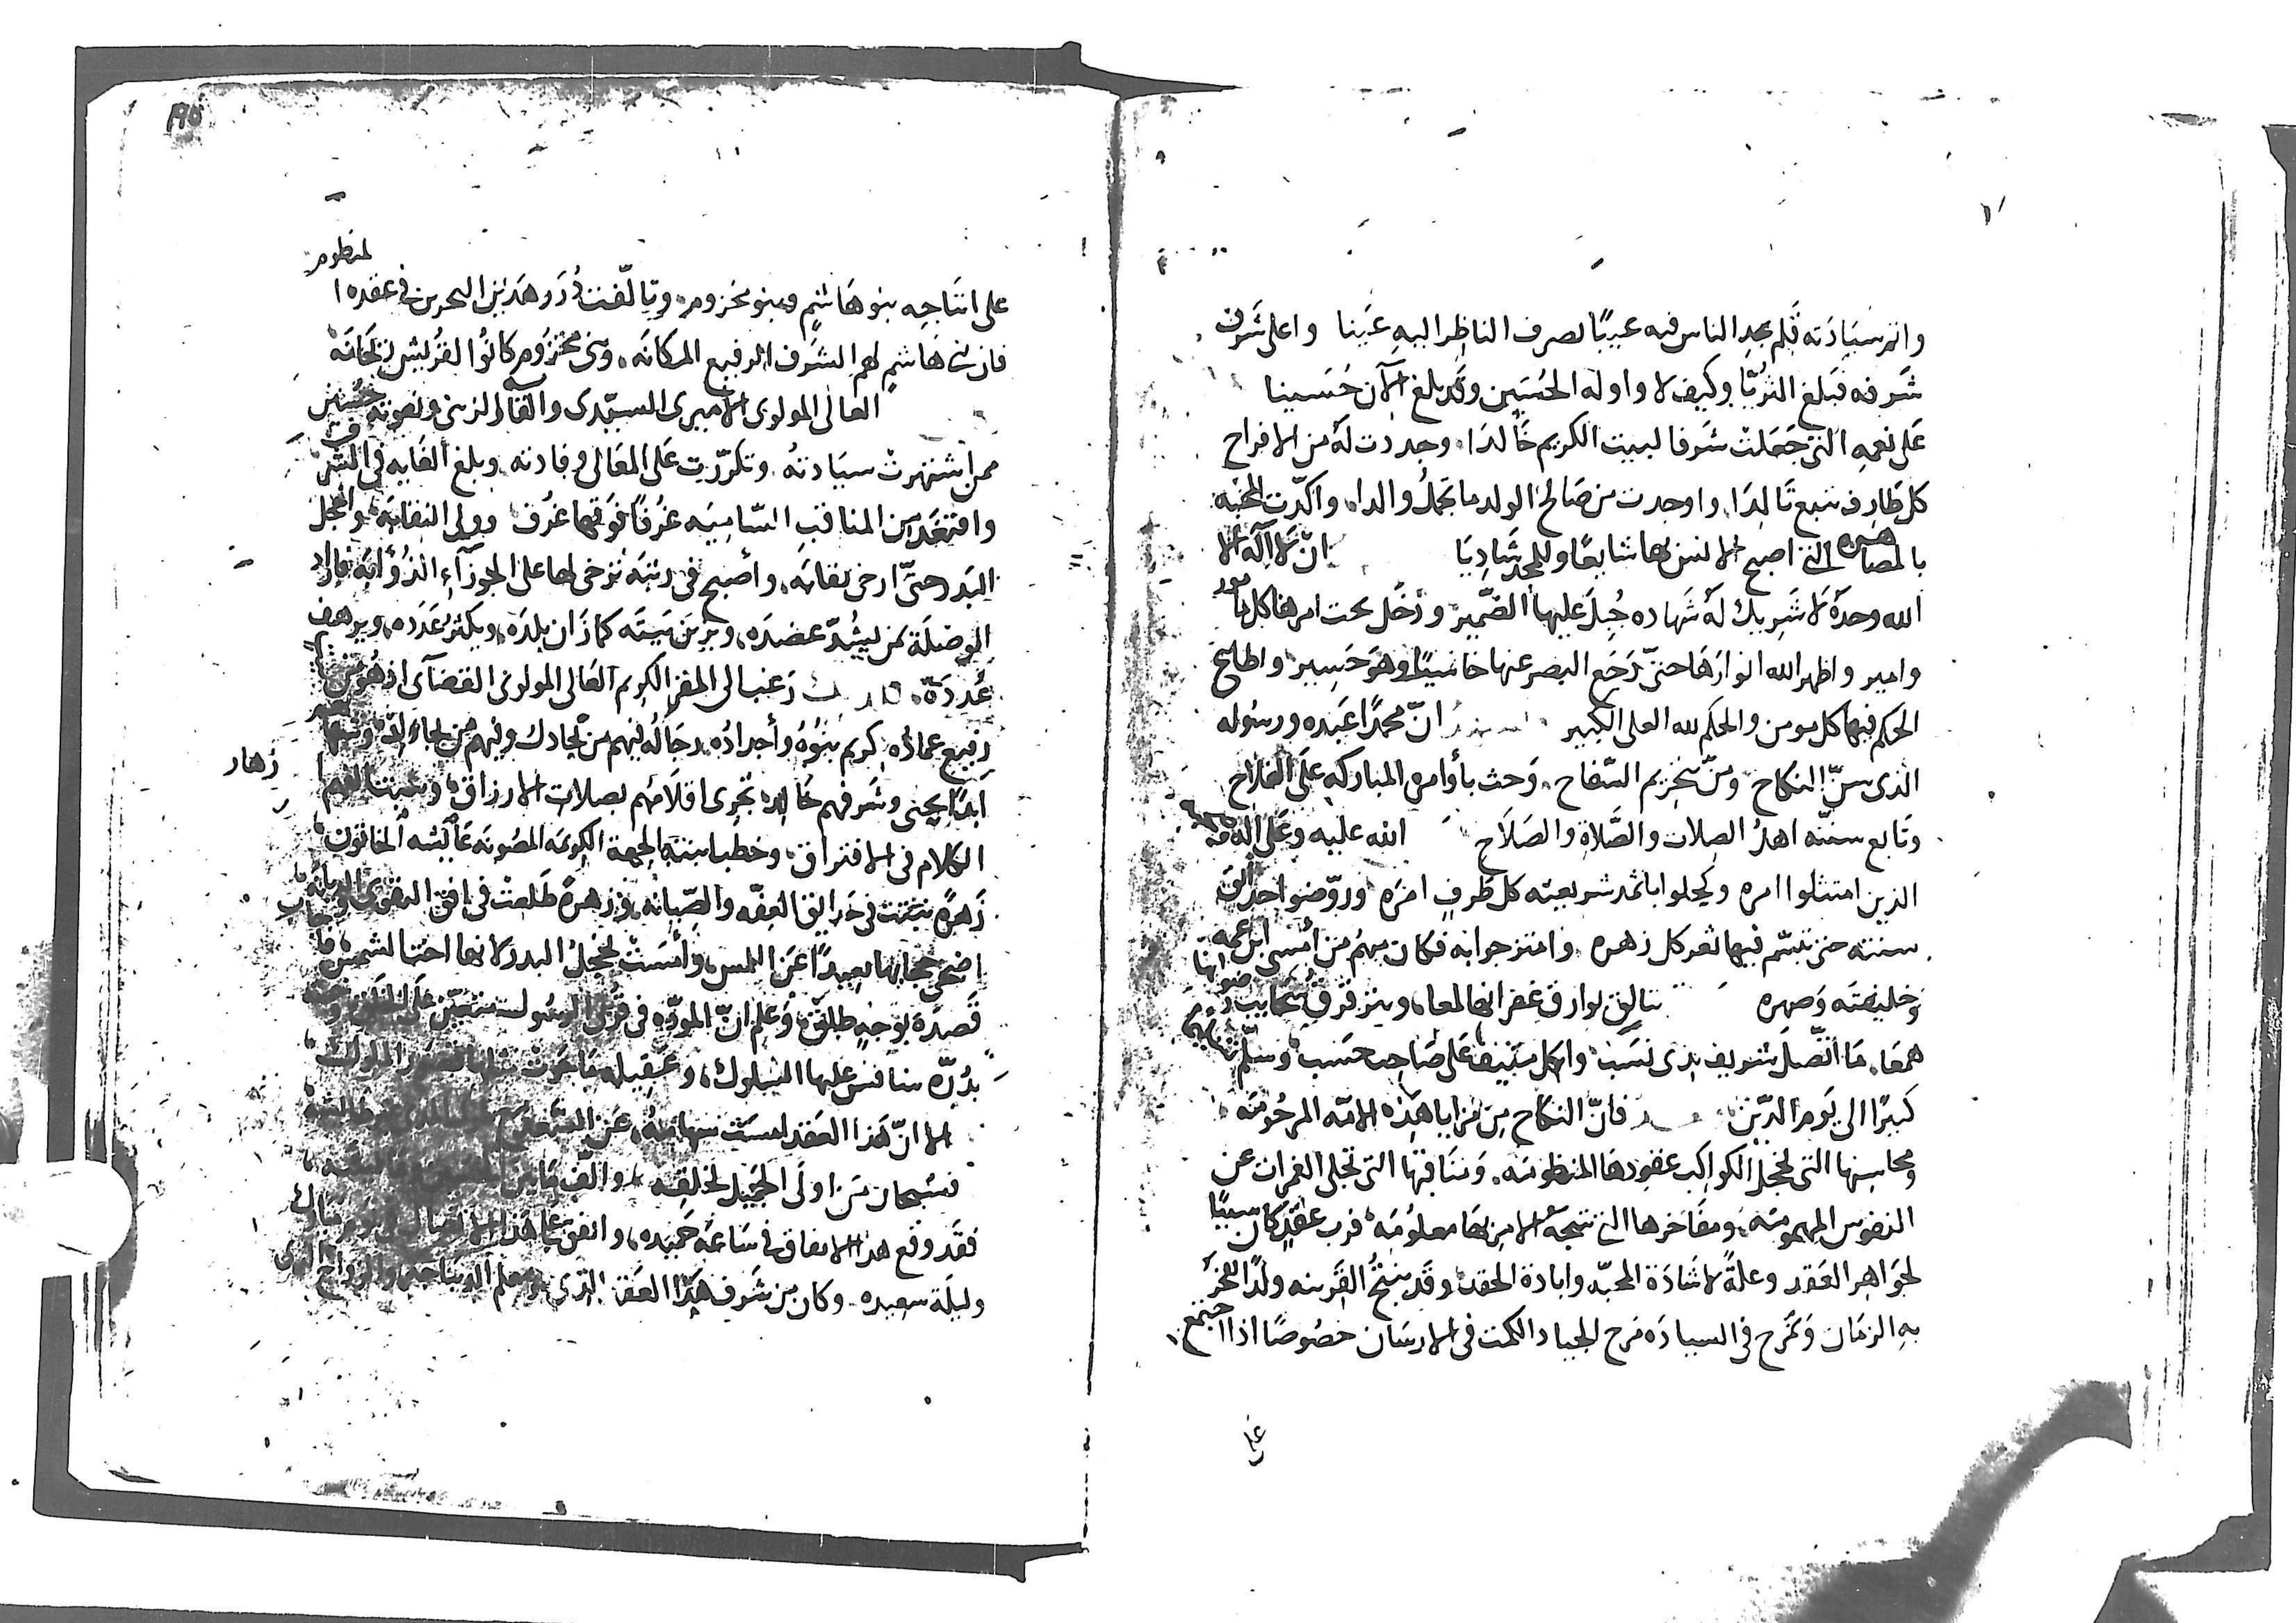 واتم سيادته فلم يجد الناس فيه عيبًا يصرف الناظر اليه عَينا واعلى شرف
شرفه فبلغ الثريا وكيف لا واوله الحُسَين وقد بلغ الآن حُسَينا
على نعمه التى جَعَلت شرفا لبيت الكريم خالدا وجددت له من الافراح
كل طارف يتبع تالدا واوجدت من صَالح الولد ما يجمل والدا واكدت المحبه
بالمصاهره التى اصبح الانس بها شايعًا وللمجد شاديا ان لا اله الا
الله وحده لا شريك له شهاده جُبل عليها الضمير ودخل تحت امرها كل مامور
وامير واظهر الله انوارها حتى رَجَع البصر عنها خاسيًا وهو حَسِير واطلع
الحكم فيها كل مومن والحكم لله العلى الكبير ان محمدًا عبده ورسُوله
الذى سنّ النكاح وسنّ تحريم السّفاح وحث بأوامره المباركه على الفلاح
وتابع سنته اهل الصِلات والصَّلاة والصَلاح الله عليه وعلى اله وصحبه
الذين امتثلوا امره وكحلوا باثمد شريعته كل طرفٍ امره وروّضوا حدائق
سنته حتى تبسّم فيها ثغر كل زهره وامتزجوا به فكان منهم من أمسى ابن عمه
وخليفته وَصهره تتالق بوارق غفرانها لمعا ويترقرق سحايب رضوانها
همعَا ما اتّصل شريف بذى نَسَب وسلّم تسليمًا
كبيرًا الى يوم الدّين فانّ النكاح مِن مزايا هَذه الامّه المرحُومَه
ومحاسنها التى تخجل الكواكب عقودها المنظومه ومنافعها التى تجلى الغمرات عن
النفوس المهمومه ومفاخرها التى نتيجة الامر بها معلُومَه فرب عقدٍ كان سببًا
لجواهر العقد وعلةً لاشادَة المحبّه وابادة الحقد وقد ينتج القرينه ولدًا يفخر
به الزمان ويمرح فى السيادَه مَرح الجياد الكمت فى الارسان خصُوصًا اذا اجتمع
على
١٩٥
على انتاجه بنو هَاشم وبنو مخزوم وتالّفت دُرَر هذين البحرين فى عقده المنظوم
فان بنى هَاشم لهم الشرف الرفيع المكانَه وبنى مخزُوم كانُوا لقريش ريحَانَه
العالى المولوى الاميرى السيّدى والقابه الزينى ونعوته حُسَين
ممن اشتهرت سيَادتهُ وتكرّرت على المعَالى وفادته وبلغ الغَايه فى الشرف
واقتعَد من المناقب السّاميَه غرفًا فوقها غرف وولى النقابَه واخجل
البَدر حتىّ ارخى نقابَه وأصبح فى رتبَة تُرخى لها على الجوزآء الذُؤابَه فاراد
الوصْلَة بمن يشُدّ عضدَه ويزين بَيتَه كما زان بلدَه ويكثر عَدَده ويرهف
عُددَهُ رَغب الى المقر الكريم العَالى المولوى القضآى اذ هُو من
رفيع عمادُه كريم بنوُهُ وأجدادُه رجَالُه فيهم من يجادل وفيهم من يجاد
ابدًا يحيى وشَرفهم خَالد تجرى اقلامُهم بصلات الارزاق
الكلام فى الافتراق وخطب ابنته الجهة الكريمَه المصُونَه عَآئشَه الخاتون
زهَار
زهرة نبتت فى حَدايق العِفّه والصّيانَه وزهرةً طَلعَتْ فى افق التقوى والديانَه
اضحى حجابها بعيدًا عن اللمس وأمست تخجل البدر لانها اخت الشمس
قَصدَه بوَجهٍ طلق وعُلِم انّ المودّه فى قربى الرسُول
بدُرّه ينافس عليها السُلوك وعَقِيله مَا حَوت مثلها قصُور الملوك
الا انّ هَذا العَقد
فسُبحان من اولى الجَمِيل لخلقه والّف مَا بَين
فقد وقع هذا الاتفاق فى سَاعَة حَميده واتفق هَذا الاتصَال فى يوم مبارك
وليلَة سعِيده وكان من شَرف هَذا العقد الذى